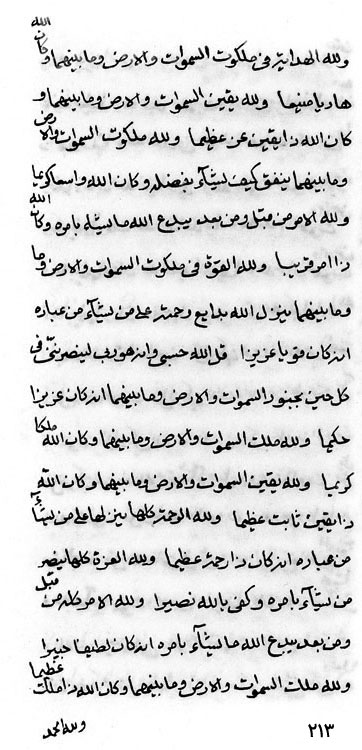 ولله الهداية في ملكوت السموات والارض وما بينهما وكان الله
هاديا منيعا ولله يقين السموات والارض وما بينهما و
كان الله ذا يقين عن عظيما ولله ملكوت السموات والارض
وما بينهما ينفق كيف يشآء بفضله وكان الله واسعا كريما
ولله الامر من قبل ومن بعد يبدع الله ما يشاء بامره وكان الله
ذا امر قريبا ولله القوة في ملكوت السموات والارض وما
وما بينهما ينزل الله بدايع رحمته على من يشآء من عباده
انه كان قويا عزيزا قل الله حسبي وانه هو ربي لينصرنني في
كل حين بجنود السموات والارض وما بينهما انه كان عزيزا
حكيما ولله ملك السموات والارض وما بينهما وكان الله ملكا
كريما ولله يقين السموات والارض وما بينهما وكان الله
ذا يقين ثابت عظيما ولله الرحمة كلها ينزلها على من يشآء
من عباده انه كان ذا رحمة عظيما ولله العزة كلها ينصر
من يشآء بامره وكفى بالله نصيرا ولله الامر كله من قبل
ومن بعد يبدع الله ما يشآء بامره انه كان لطيفا خبيرا
ولله ملك السموات والارض وما بينهما وكان الله ذا ملك عظيما
ولله الحمد
٢١٣